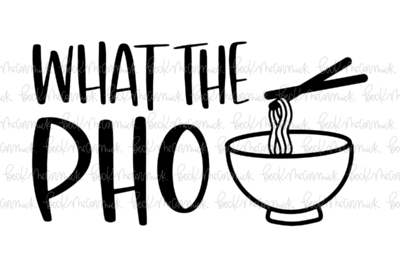 WHAT THE
PHO